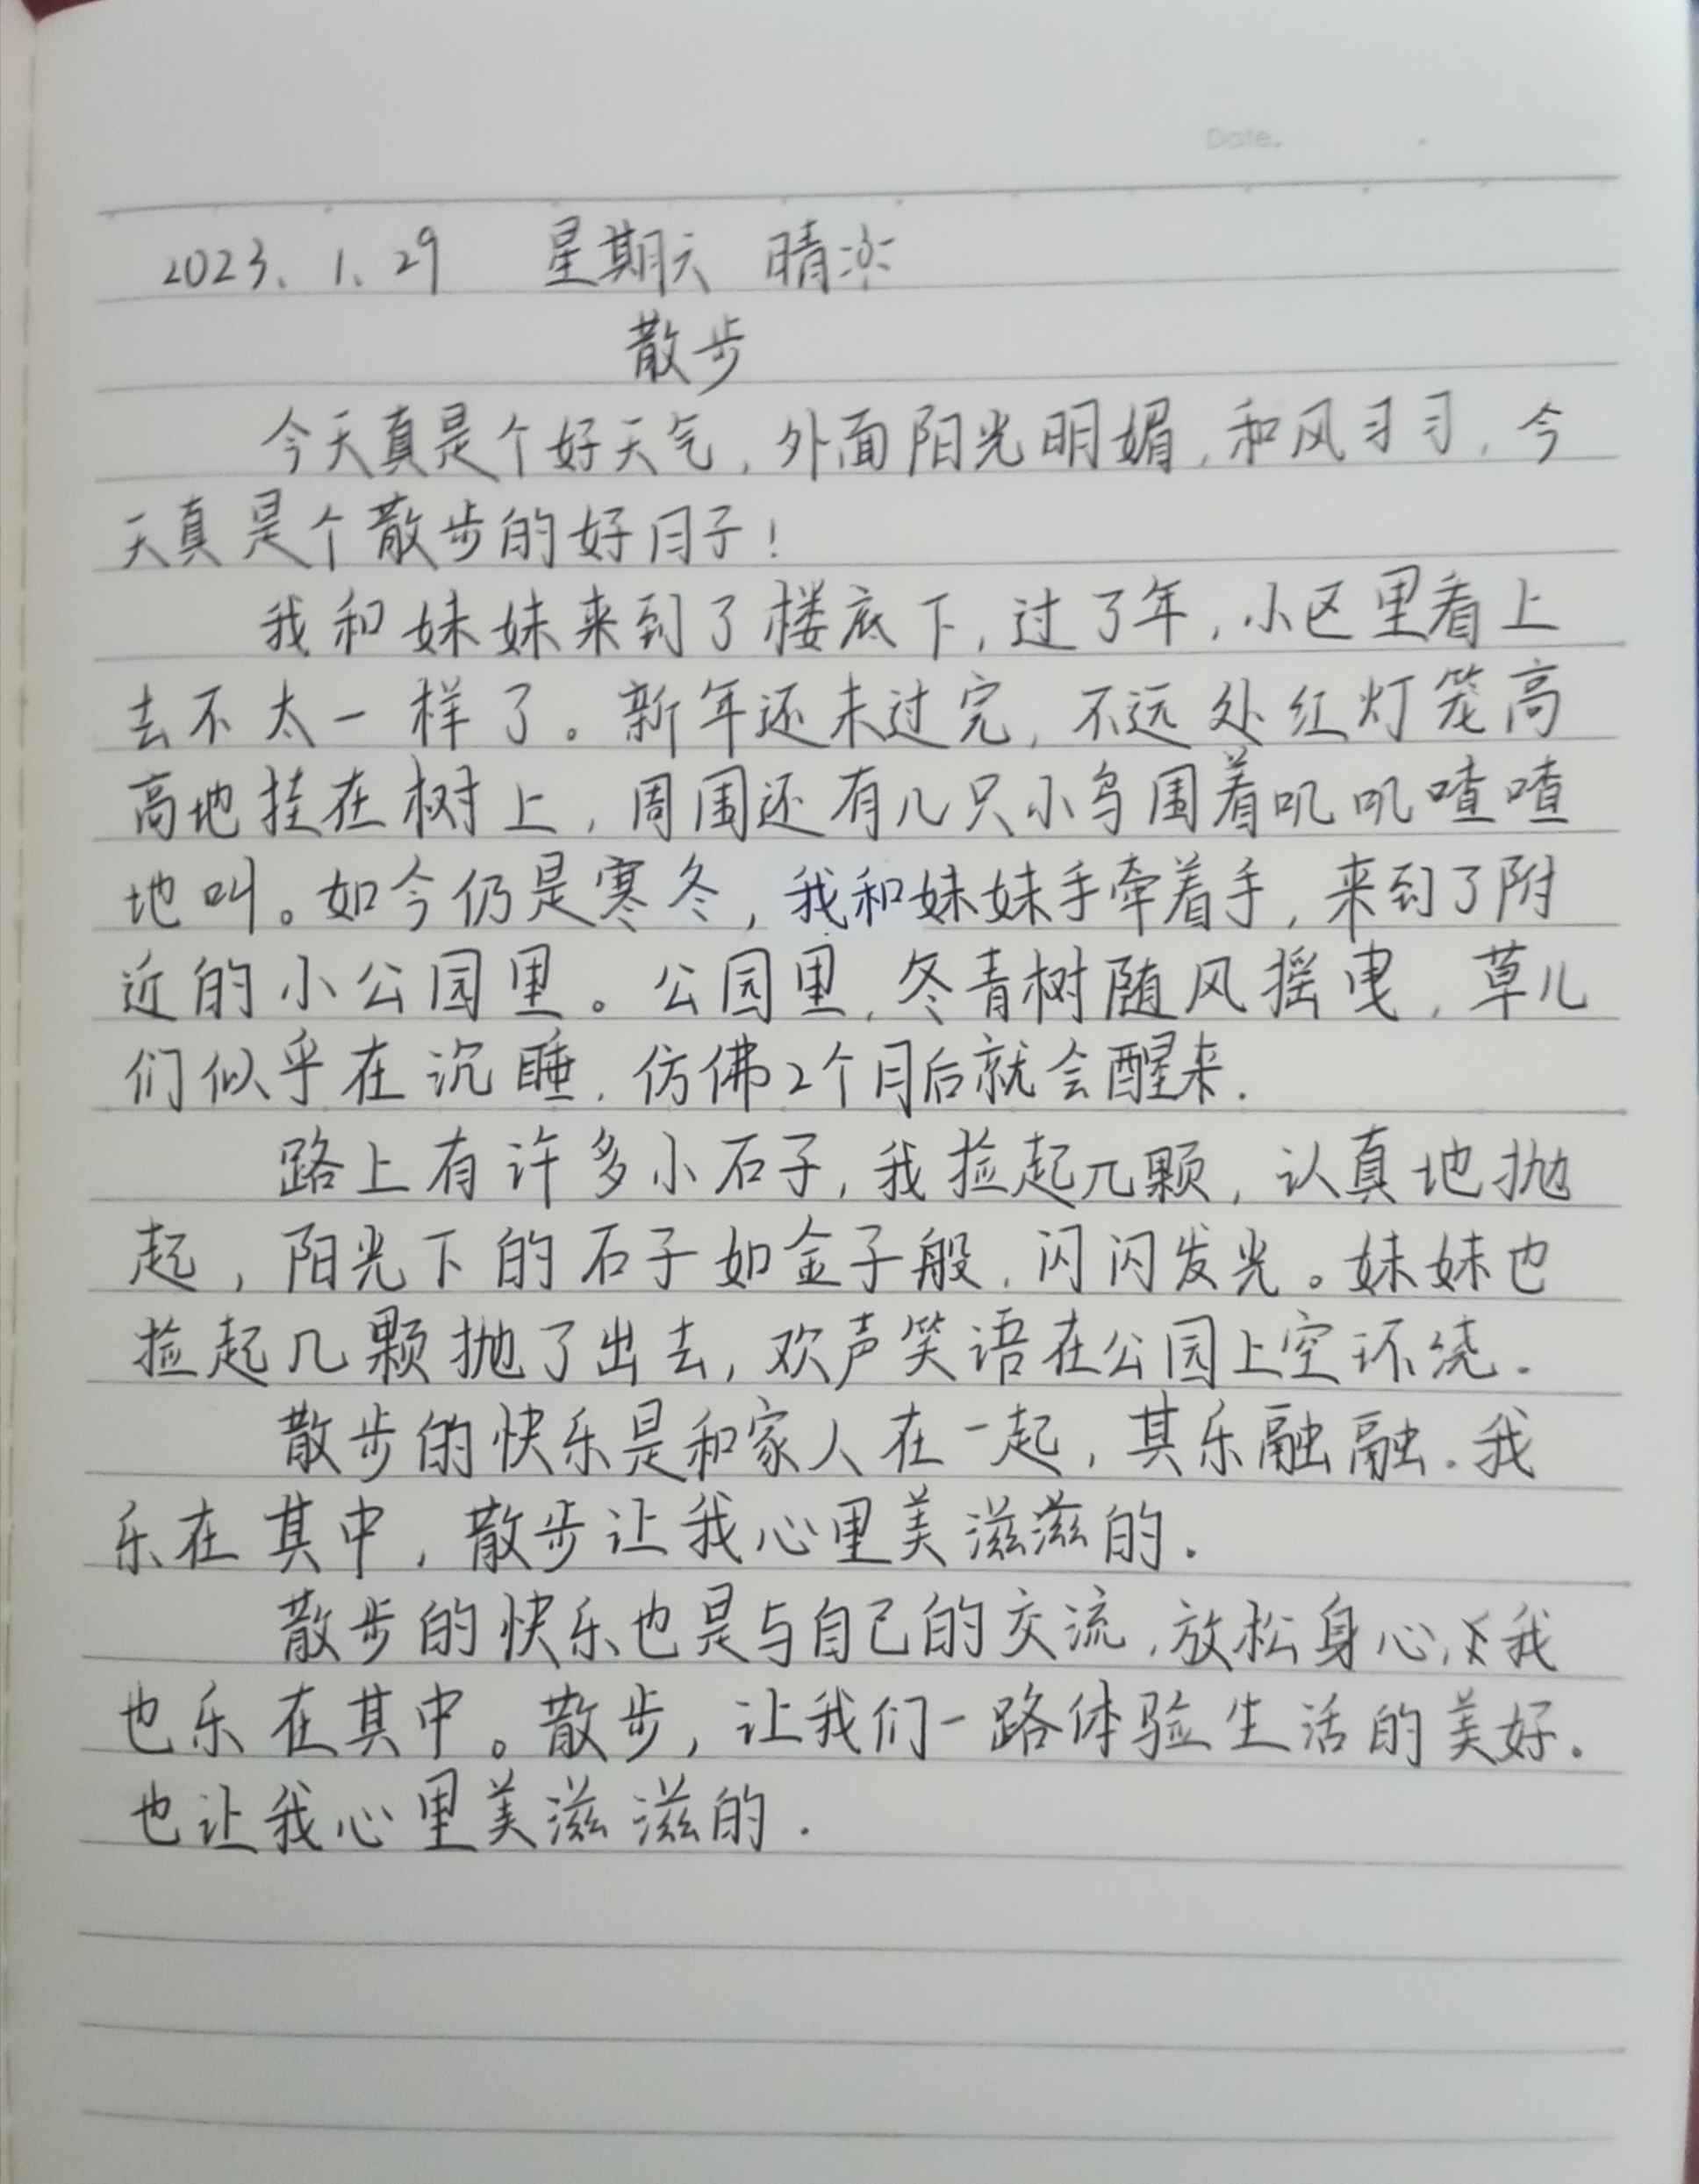 Date.
2023、1、29 星期天 晴
散步
今天真是个好天气，外面阳光明媚，和风习习，今
天真是个散步的好日子！
我和妹妹来到了楼底下，过了年，小区里看上
去不太一样了。新年还未过完，不远处红灯笼高
高地挂在树上，周围还有几只小鸟围着叽叽喳喳
地叫。如今仍是寒冬，我和妹妹手牵着手，来到了附
近的小公园里。公园里，冬青树随风摇曳，草儿
们似乎在沉睡，仿佛2个月后就会醒来.
路上有许多小石子，我捡起几颗，认真地抛
起，阳光下的石子如金子般，闪闪发光。妹妹也
捡起几颗抛了出去，欢声笑语在公园上空环绕.
散步的快乐是和家人在一起，其乐融融.我
乐在其中，散步让我心里美滋滋的.
散步的快乐也是与自己的交流，放松身心，我
也乐在其中。散步，让我们一路体验生活的美好.
也让我心里美滋滋的.